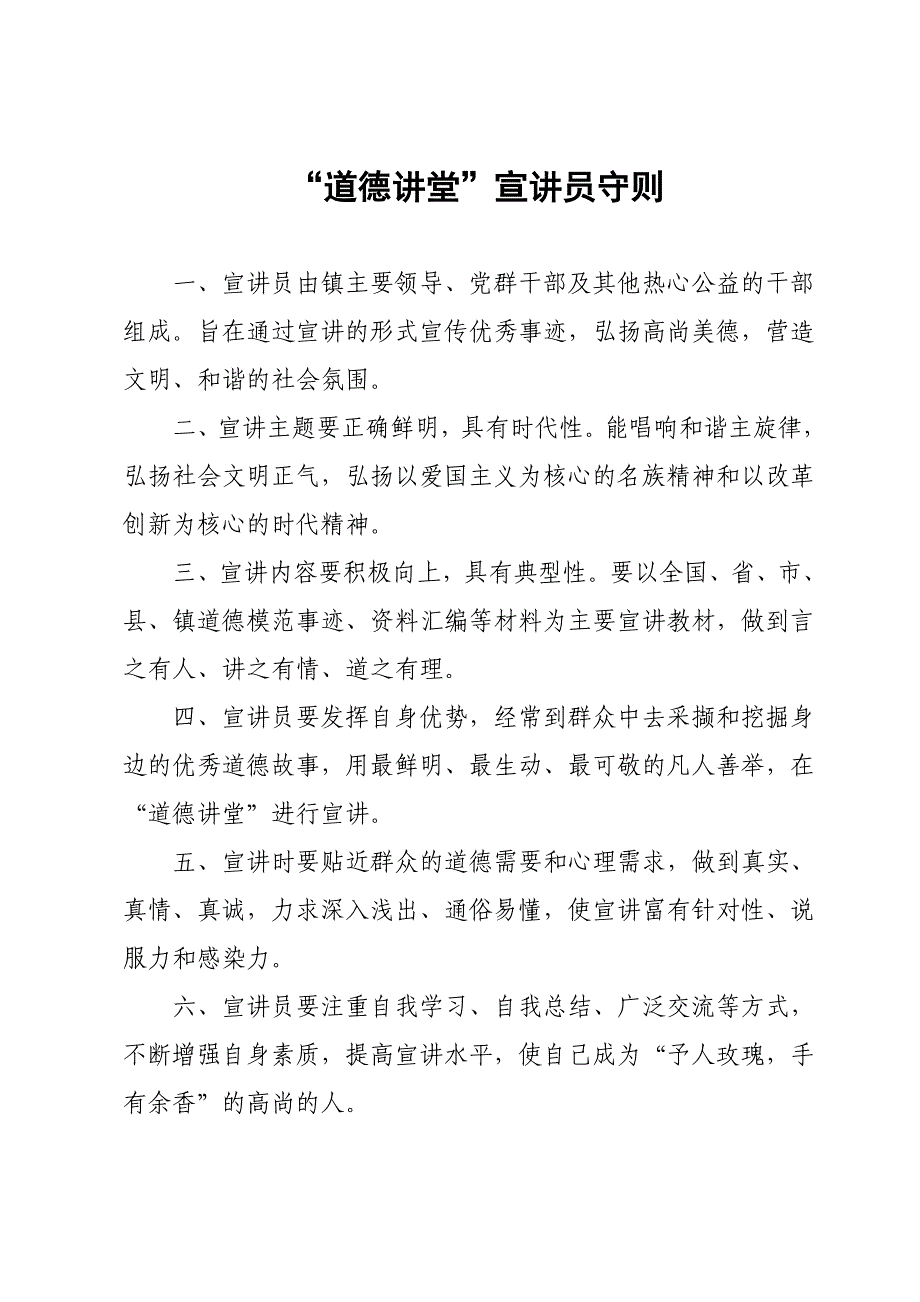 “道德讲堂”宣讲员守则
一、宣讲员由镇主要领导、党群干部及其他热心公益的干部
组成。旨在通过宣讲的形式宣传优秀事迹，弘扬高尚美德，营造
文明、和谐的社会氛围。
二、宣讲主题要正确鲜明，具有时代性。能唱响和谐主旋律，
弘扬社会文明正气，弘扬以爱国主义为核心的名族精神和以改革
创新为核心的时代精神。
三、宣讲内容要积极向上，具有典型性。要以全国、省、市、
县、镇道德模范事迹、资料汇编等材料为主要宣讲教材，做到言
之有人、讲之有情、道之有理。
四、宣讲员要发挥自身优势，经常到群众中去采撷和挖掘身
边的优秀道德故事，用最鲜明、最生动、最可敬的凡人善举，在
“道德讲堂”进行宣讲。
五、宣讲时要贴近群众的道德需要和心理需求，做到真实、
真情、真诚，力求深入浅出、通俗易懂，使宣讲富有针对性、说
服力和感染力。
六、宣讲员要注重自我学习、自我总结、广泛交流等方式，
不断增强自身素质，提高宣讲水平，使自己成为“予人玫瑰，手
有余香”的高尚的人。